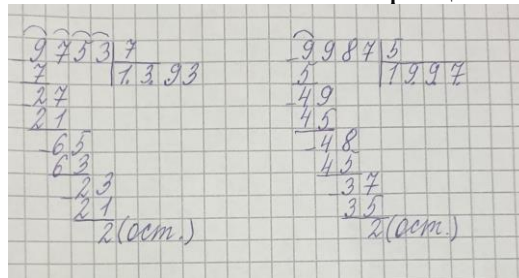 9753 | 7
7 | 1.3.93
-27
21
-65
63
-23
21
2(ост.)
-9987 | 5
5 | 1997.
-49
45
-48
45
-37
35
2(ост.)